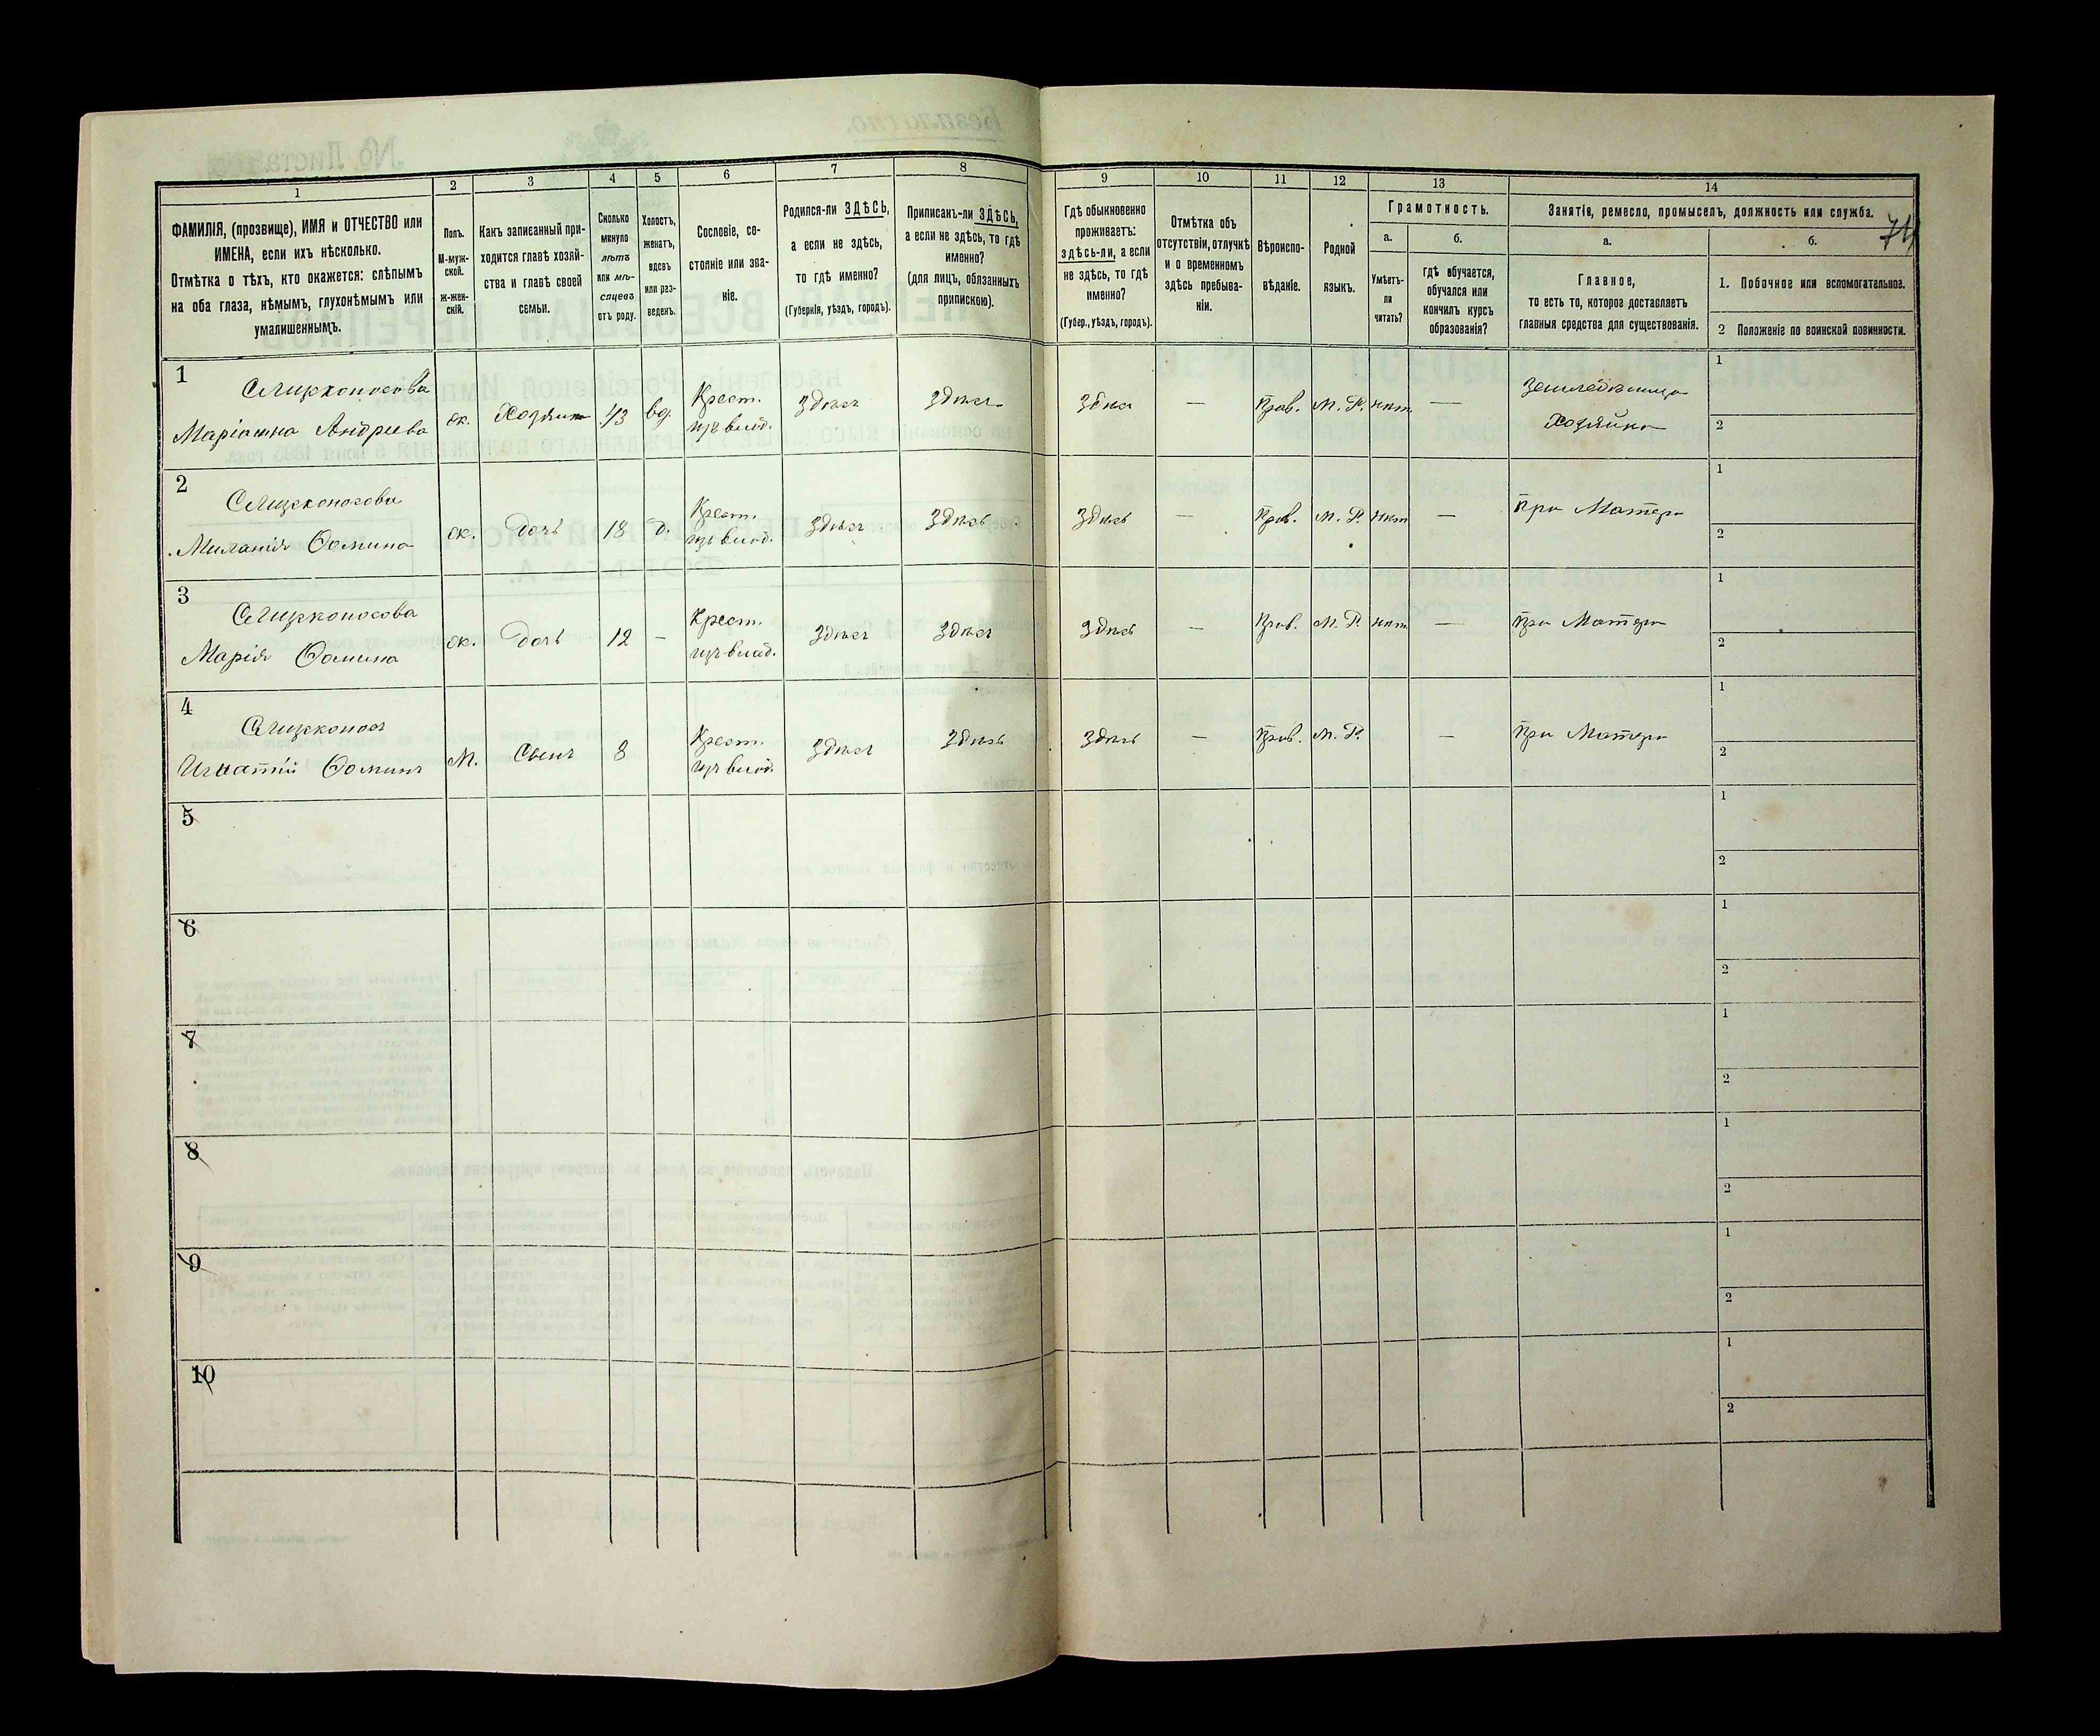 1 2 3 4 5 6 7 8 9 10 11 12 13 14
ФАМИЛІЯ, (прозвище), ИМЯ и ОТЧЕСТВО или
ИМЕНА, если ихъ нѣсколько.
Отмѣтка о тѣхъ, кто окажется: слѣпымъ
на оба глаза, нѣмымъ, глухонѣмымъ или
умалишеннымъ.
Полъ.
М-муж-
ской.
Ж-жен-
скій.
Какъ записанный при-
ходится главѣ хозяй-
ства и главѣ своей
семьи.
Сколько
минуло
лѣтъ
или мѣ-
сяцевъ
отъ роду.
Холостъ,
женатъ,
вдовъ
или раз-
веденъ.
Сословіе, со-
стояніе или зва-
ніе.
Родился-ли ЗДѢСЬ,
а если не здѣсь,
то гдѣ именно?
(Губернія, уѣздъ, городъ).
Приписанъ-ли ЗДѢСЬ,
а если не здѣсь, то гдѣ
именно?
(для лицъ, обязанныхъ
припискою).
Гдѣ обыкновенно
проживаетъ:
здѣсь-ли, а если
не здѣсь, то гдѣ
именно?
(Губер., уѣздъ, городъ).
Отмѣтка объ
отсутствіи, отлучкѣ
и о временномъ
здѣсь пребыва-
ніи.
Вѣроиспо-
вѣданіе.
Родной
языкъ.
Грамотность.
а. б.
Умѣетъ-
ли
читать?
гдѣ обучается,
обучался или
кончилъ курсъ
образованія?
Занятія, ремесло, промыселъ, должность или служба.
а. б.
Главное,
то есть то, которое доставляетъ
главныя средства для существованія.
1. Побочное или вспомогательное.
2 Положеніе по воинской повинности.
1
Маріанна Андреева
ж. Хозяинъ 43 вд.
Крест.
изъ влад.
здѣсь здѣсь здѣсь — Прав. М. Р. нѣтъ —
Хозяйка
1
2
2
Миланія Ѳомина
ж. Дочь 18 д.
Крест.
изъ влад.
здѣсь здѣсь здѣсь — Прав. М. Р. нѣтъ — При Матери
1
2
3
Марія Ѳомина
ж. Дочь 12 —
Крест.
изъ влад.
здѣсь здѣсь здѣсь — Прав. М. Р. нѣтъ — При Матери
1
2
4
Игнатій Ѳоминъ
М. Сынъ 8
Крест.
изъ влад.
здѣсь здѣсь здѣсь — Прав. М. Р. — При Матери
1
2
5
1
2
6
1
2
7
1
2
8
1
2
9
1
2
10
1
2